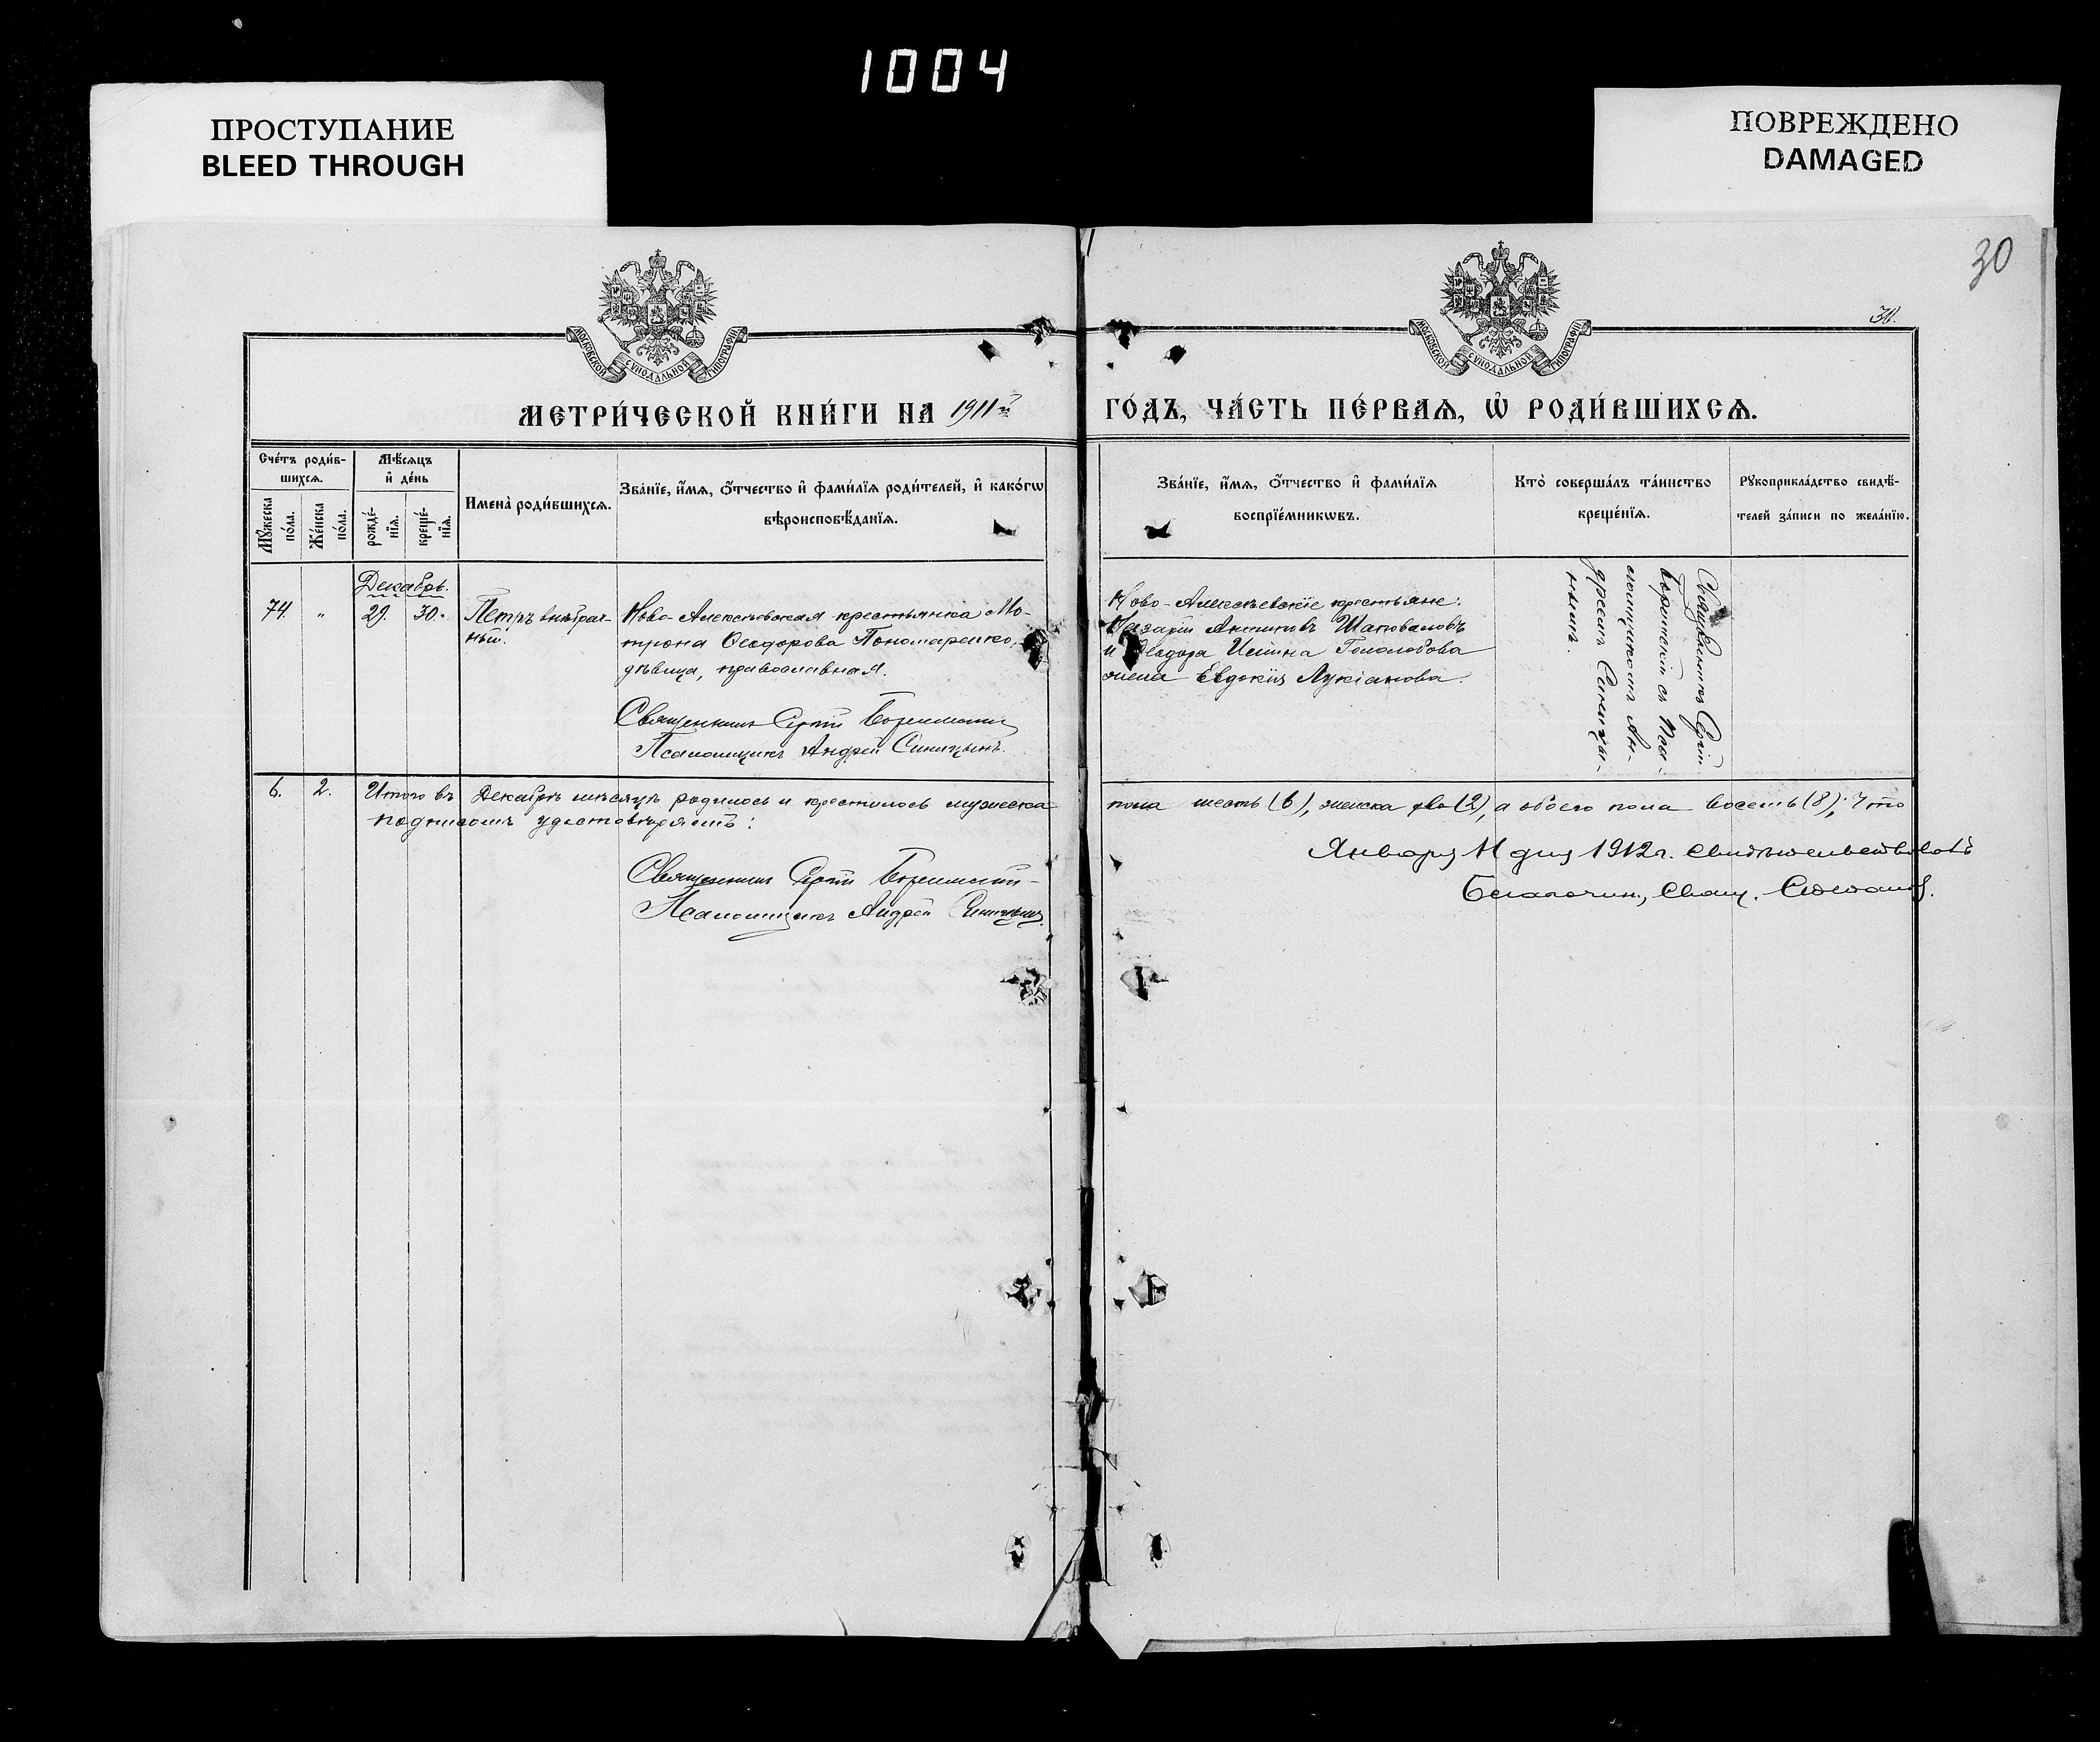 1004
ПРОСТУПАНИЕ
BLEED THROUGH
ПОВРЕЖДЕНО
DAMAGED
30
30.
МОСКОВСКОЙ СѴНОДАЛЬНОЙ ТИПОГРАФІИ
МОСКОВСКОЙ СѴНОДАЛЬНОЙ ТИПОГРАФІИ
МЕТРИ́ЧЕСКОЙ КНИ́ГИ НА 1911й
ГО́ДЪ, ЧА́СТЬ ПЕ́РВАѦ, Ѡ҆ РОДИ́ВШИХСѦ.
Сче́тъ роди́в-
шихсѧ.
Мꙋ́жеска
по́ла.
Же́нска
по́ла.
Мѣ́сѧцъ
и҆ де́нь
рожде́-
нїѧ.
креще́-
нїѧ.
Имена̀ роди́вшихсѧ.
Зва́нїе, и҆́мѧ, ѻ҆́тчество и҆ фами́лїѧ роди́телей, и҆ како́гѡ
вѣроисповѣ́данїѧ.
Зва́нїе, и҆́мѧ, ѻ҆́тчество и҆ фами́лїѧ
воспрїе́мникѡвъ.
Кто̀ соверша́лъ та́инство
креще́нїѧ.
Рꙋкоприкла́дство свидѣ́-
телей за́писи по жела́нїю.
Декабрь.
74. „ 29. 30.
Петръ внѣбрач-
ный.
Ново-Алексѣевская крестьянка Мо-
трона Ѳеодорова Пономаренко,
дѣвица, православная.
Священникъ Сергій
Псаломщикъ Андрей Синицынъ.
Ново-Алексѣевскіе крестьяне:
Назарій Антиповъ Шаповаловъ
и Ѳеодора Гололобова
жена Евдокія Лукіанова.
Священникъ Сергій
съ Псал-
ломщикомъ Ан-
дреемъ Синицы-
нымъ.
6. 2. Итого въ Декабрѣ мѣсяцѣ родилось и крестилось мужеска
пола шесть (6), женска два (2), а обоего пола восемь (8); что
подписомъ удостовѣряемъ:
Священникъ Сергій
Псаломщикъ Андрей Синицынъ.
Января 11 дня 1912 г. свидѣтельствовалъ
Благочин., Свящ.